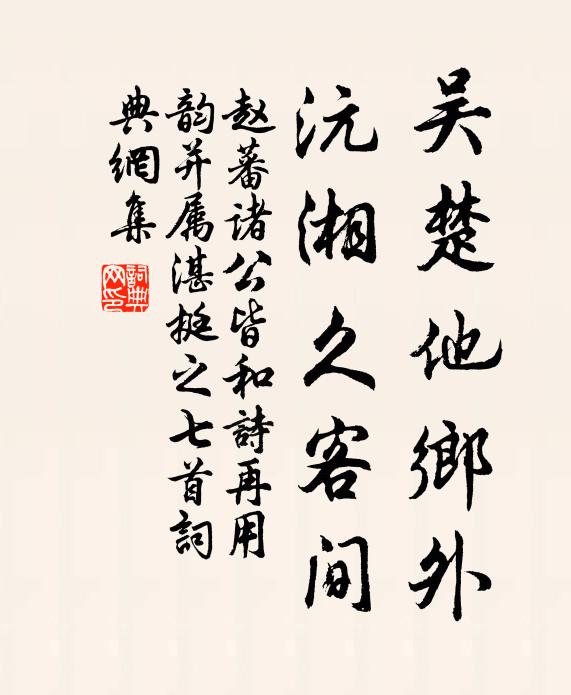 吴楚他鄉外
沅湘久客间
赵蕃诸公皆和詩再用
韵并属湛挺之七首詞
典網集
詞典网印